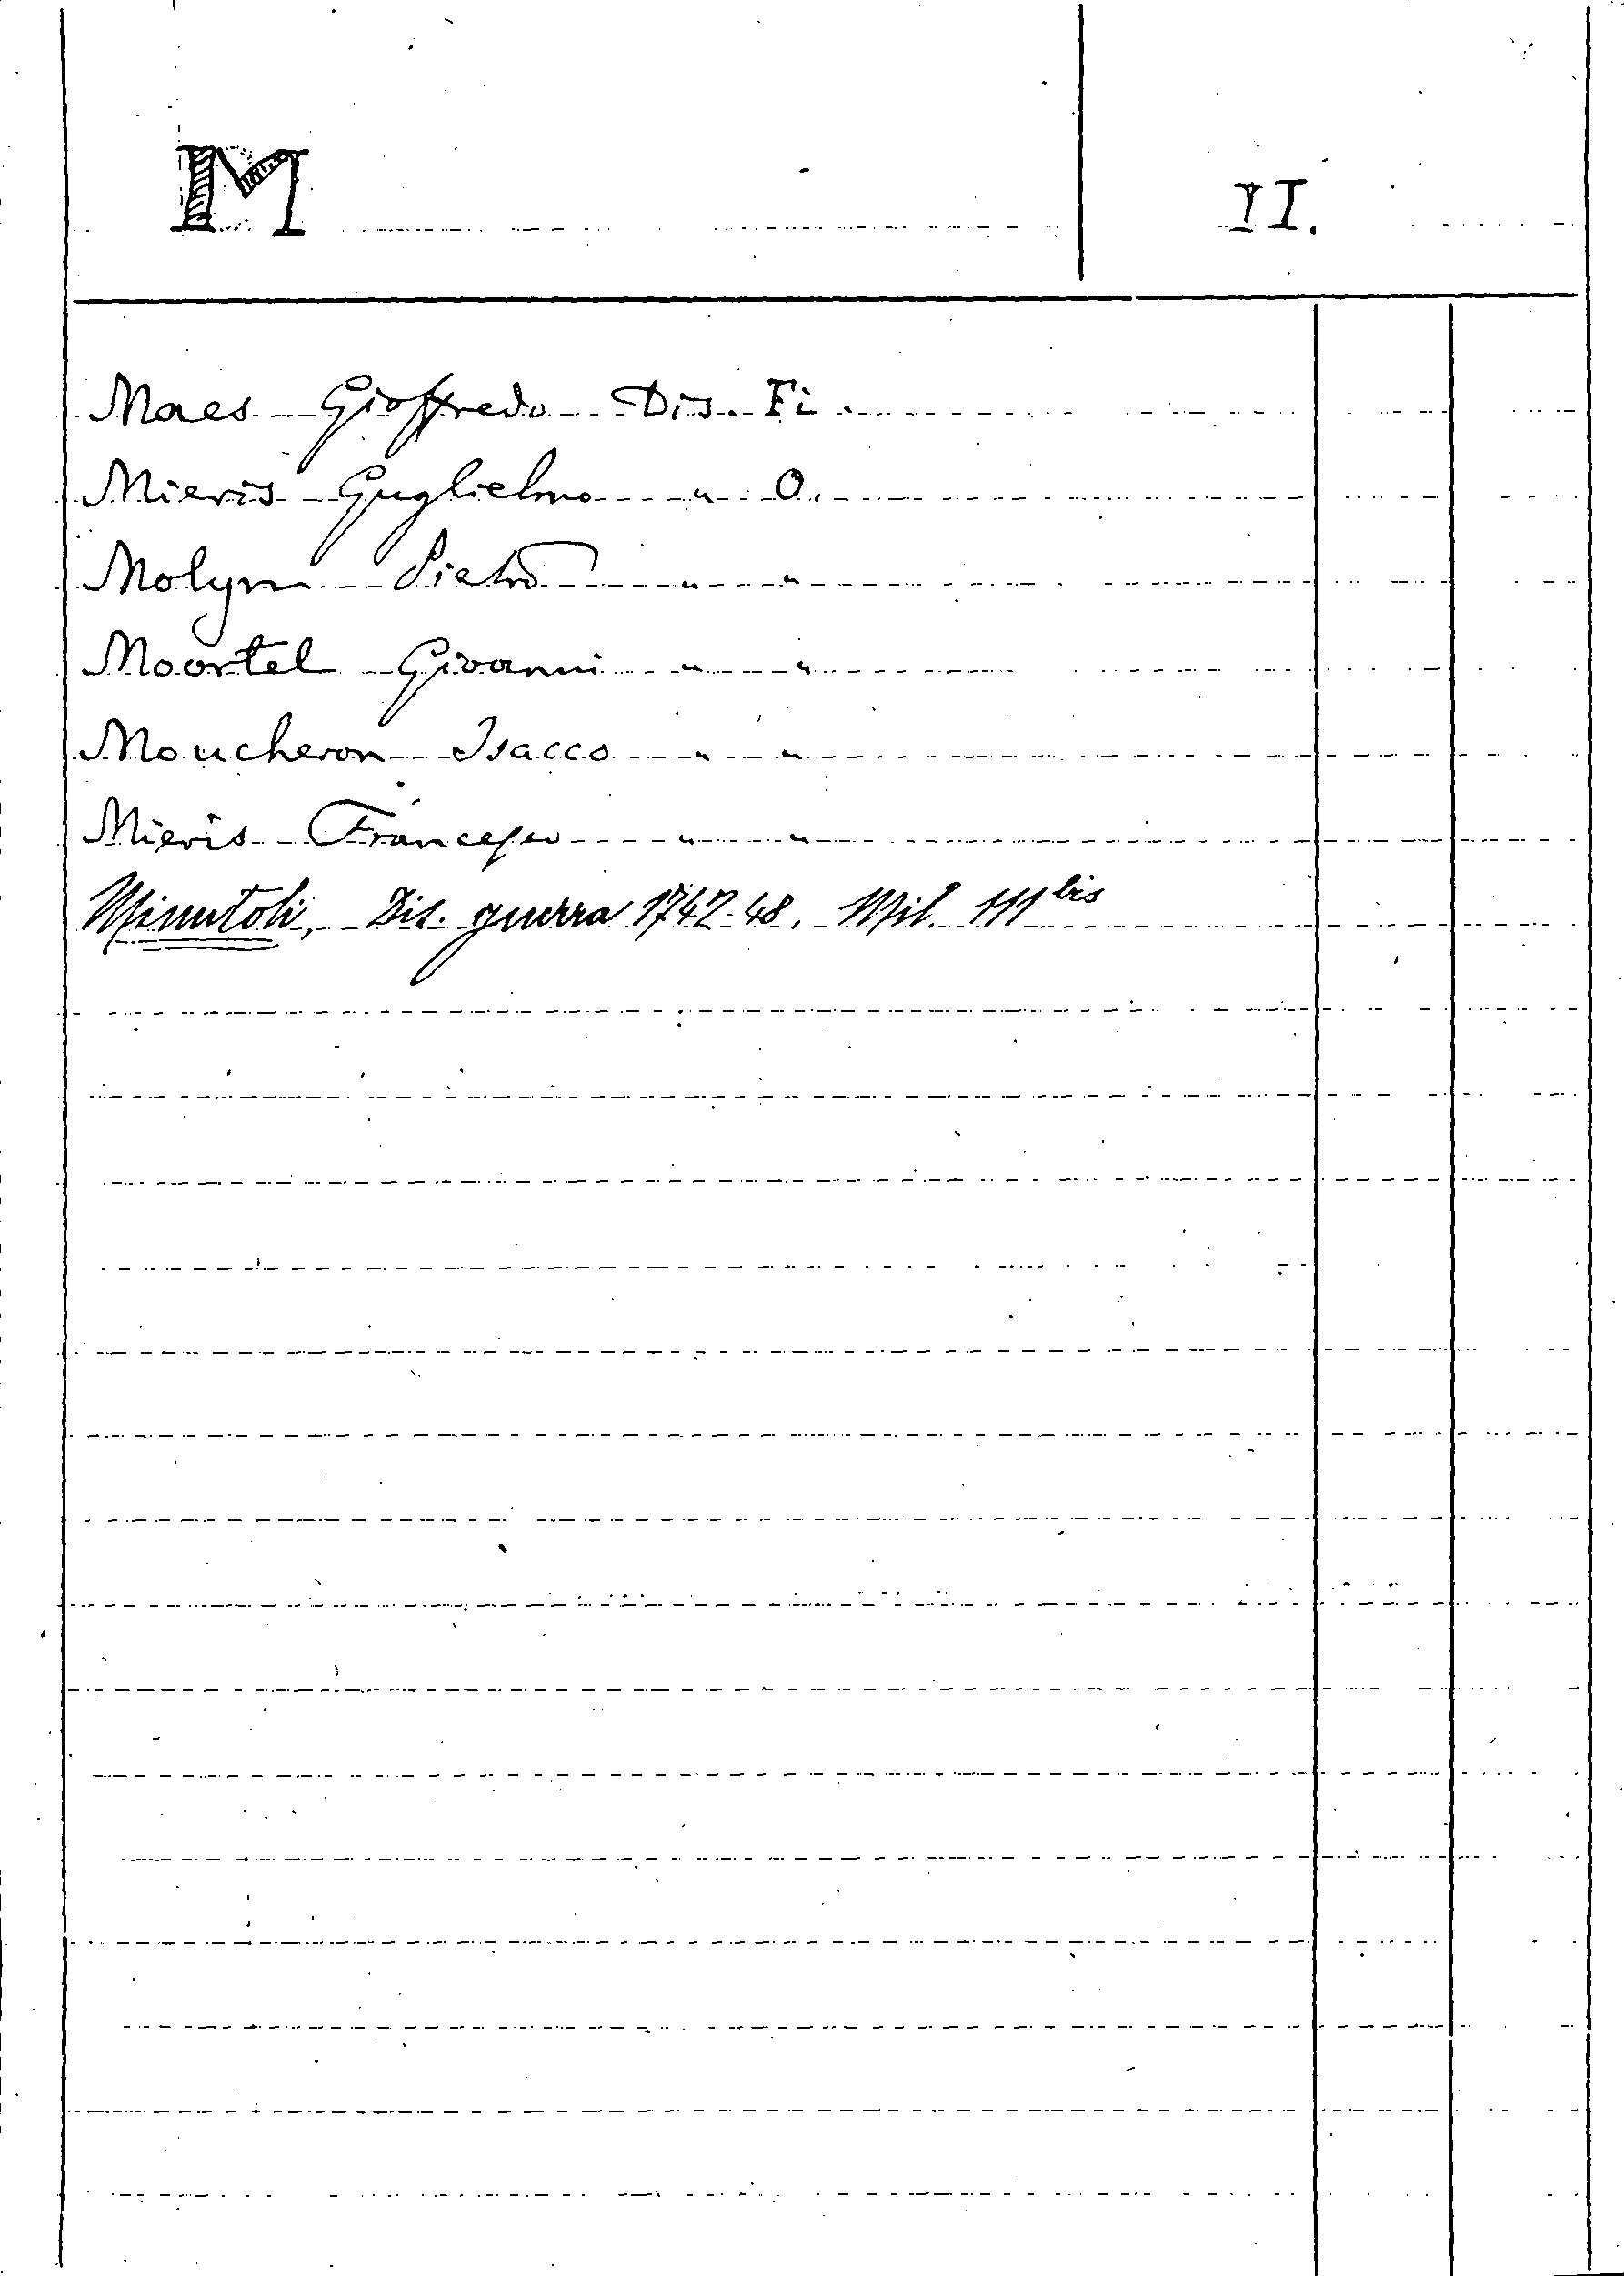 M II.
Maes Gioffredo Dis. Fi.
Mieris Guglielmo " O.
Molyn Pietro " "
Moortel Giovanni " "
Moucheron Isacco " "
Mieris Francesco " "
Minutoli, Dis. guerra 1742-48. Mil. 111 bis